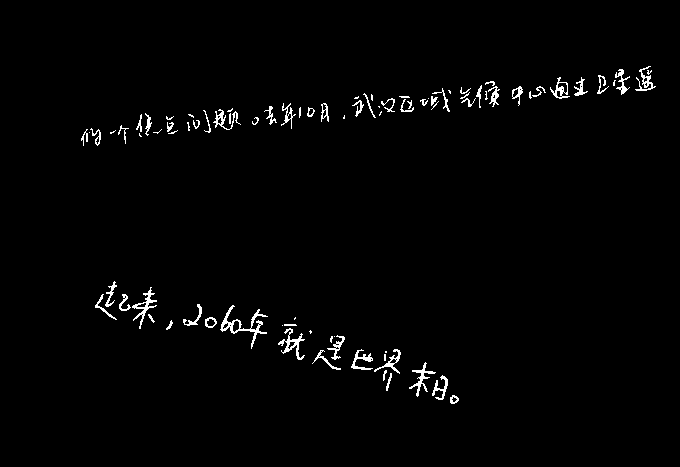 的一个焦点问题。去年10月，武汉区域气候中心通过卫星遥
起来，2060年就是世界末日。